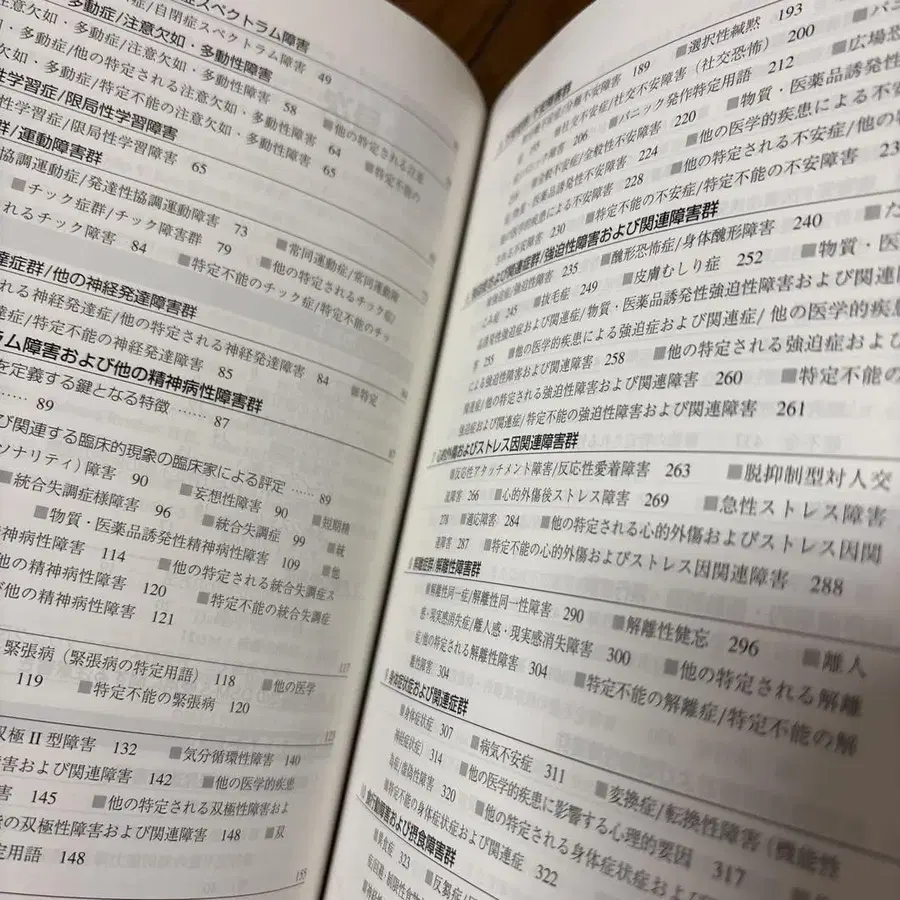 症スペクトラム障害
症/自閉症スペクトラム障害 49
多動症/注意欠如・多動性障害
欠如・多動症/注意欠如・多動性障害 58 ■他の特定される注意
・多動症/他の特定される注意欠如・多動性障害 64 ■特定不能の
・多動症/特定不能の注意欠如・多動性障害 65
性学習症/限局性学習障害
性学習症/限局性学習障害 65
群/運動障害群
協調運動症/発達性協調運動障害 73 ■常同運動症/常同運動障
■チック症群/チック障害群 79 ■他の特定されるチック症/
れるチック障害 84 ■特定不能のチック症/特定不能のチッ
達症群/他の神経発達障害群
れる神経発達症/他の特定される神経発達障害 84 ■特定
達症/特定不能の神経発達障害 85
ラム障害および他の精神病性障害群 87
を定義する鍵となる特徴 …… 87
…… 89
び関連する臨床的現象の臨床家による評定 …… 89
ソナリティ)障害 90 ■妄想性障害 90 ■短期精
■統合失調症様障害 96 ■統合失調症 99 ■統
■物質・医薬品誘発性精神病性障害 109 ■他
神病性障害 114 ■他の特定される統合失調症ス
他の精神病性障害 120 ■特定不能の統合失調症
び他の精神病性障害 121
117
緊張病(緊張病の特定用語) 118 ■他の医学
119 ■特定不能の緊張病 120
123
双極 II 型障害 132 ■気分循環性障害 140
害および関連障害 142 ■他の医学的疾患
害 145 ■他の特定される双極性障害およ
の双極性障害および関連障害 148 ■双
定用語 148
155
189 ■選択性緘黙 193
社交不安症/社交不安障害(社交恐怖) 200 ■パニ
206 ■パニック発作特定用語 212 ■広場恐
全般不安症/全般性不安障害 220 ■物質・医薬品誘発性
物質・医薬品誘発性不安障害 224 ■他の医学的疾患による不安
医学的疾患による不安障害 228 ■他の特定される不安症/他の特
される不安障害 230 ■特定不能の不安症/特定不能の不安障害 23
および関連症群/強迫性障害および関連障害群
強迫症/強迫性障害 235 ■醜形恐怖症/身体醜形障害 240 ■た
245 ■抜毛症 249 ■皮膚むしり症 252 ■物質・医
品誘発性強迫症および関連症/物質・医薬品誘発性強迫性障害および関連障
害 255 ■他の医学的疾患による強迫症および関連症/他の医学的疾患
による強迫性障害および関連障害 258 ■他の特定される強迫症および
関連症/他の特定される強迫性障害および関連障害 260 ■特定不能の
強迫症および関連症/特定不能の強迫性障害および関連障害 261
心的外傷およびストレス因関連障害群
■反応性アタッチメント障害/反応性愛着障害 263 ■脱抑制型対人交
流障害 266 ■心的外傷後ストレス障害 269 ■急性ストレス障害
278 ■適応障害 284 ■他の特定される心的外傷およびストレス因関
連障害 287 ■特定不能の心的外傷およびストレス因関連障害 288
解離症群/解離性障害群
■解離性同一症/解離性同一性障害 290 ■解離性健忘 296 ■離人
感・現実感消失症/離人感・現実感消失障害 300 ■他の特定される解離
症/他の特定される解離性障害 304 ■特定不能の解離症/特定不能の解
離性障害 304
身体症状症および関連症群
■身体症状症 307 ■病気不安症 311 ■変換症/転換性障害(機能性
神経症状症) 314 ■他の医学的疾患に影響する心理的要因 317
虚偽性障害 320 ■他の特定される身体症状症および関
■特定不能の身体症状症および関連症 322
食行動障害および摂食障害群
■異食症 323 ■反芻症/